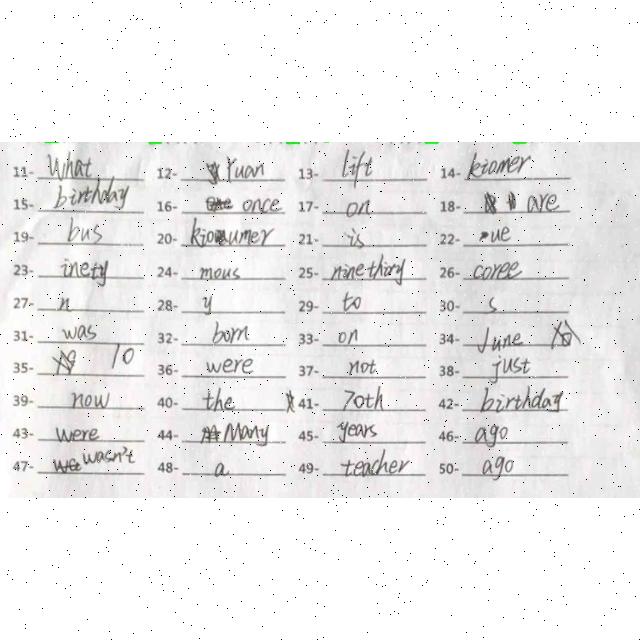 11- What 12- Yuan 13- lift 14- kiomer
15- birthday 16- once 17- on 18- are
19- bus 20- kiooumer 21- is 22- ue
23- inety 24- mous 25- ninethiry 26- coree
27- n 28- y 29- to 30- s
31- was 32- born 33- on 34- June
35- 10 36- were 37- not 38- just
39- now 40- the 41- 70th 42- birthday
43- were 44- Many 45- years 46- ago
47- wasn't 48- a 49- teacher 50- ago